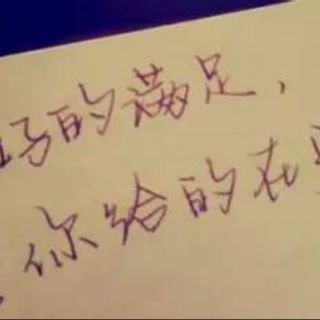 的满足，
你给的在